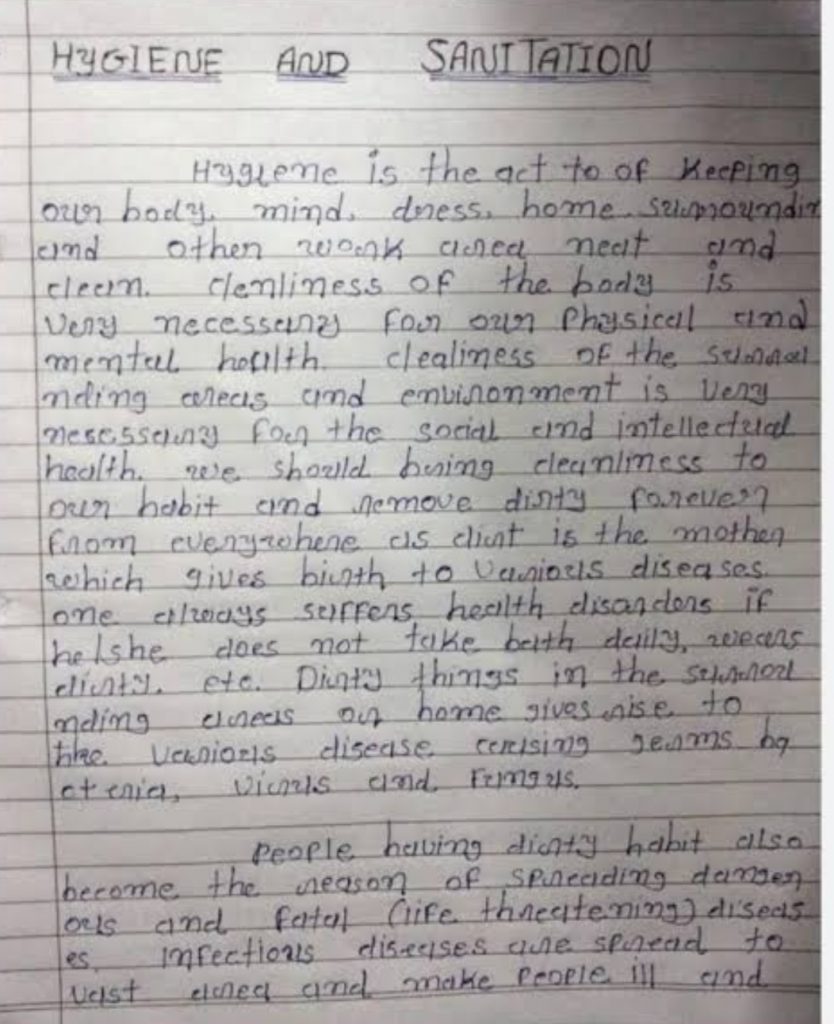 HYGIENE AND SANITATION
Hygiene is the act to of Keeping
our body, mind, dress, home surroundin
and other work area neat and
clean. clenliness of the body is
very necessary for our Physical and
mental health. clealiness of the surrou
nding areas and environment is very
nesessary for the social and intellectual
health. we should bring cleanliness to
our habit and remove dirty forever
from everywhere as dirt is the mother
which gives birth to various diseases.
one always suffers health disorders if
he/she does not take bath daily, wears
dirty. etc. Dirty things in the surrou
nding areas or home gives rise to
the various disease causing germs ba
cteria, virus and Fungus.
People having dirty habit also
become the reason of spreading danger
ous and fatal (life threatening) diseas
es. Infectious diseases are spread to
vast area and make People ill and